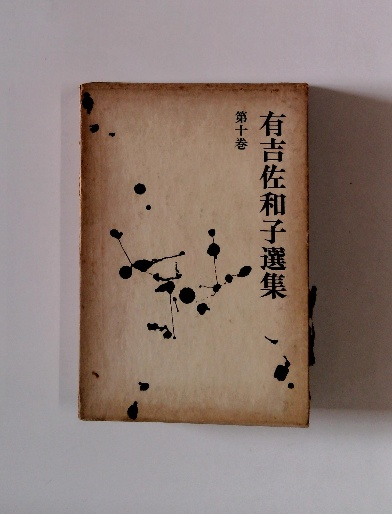 有吉佐和子選集
第十巻